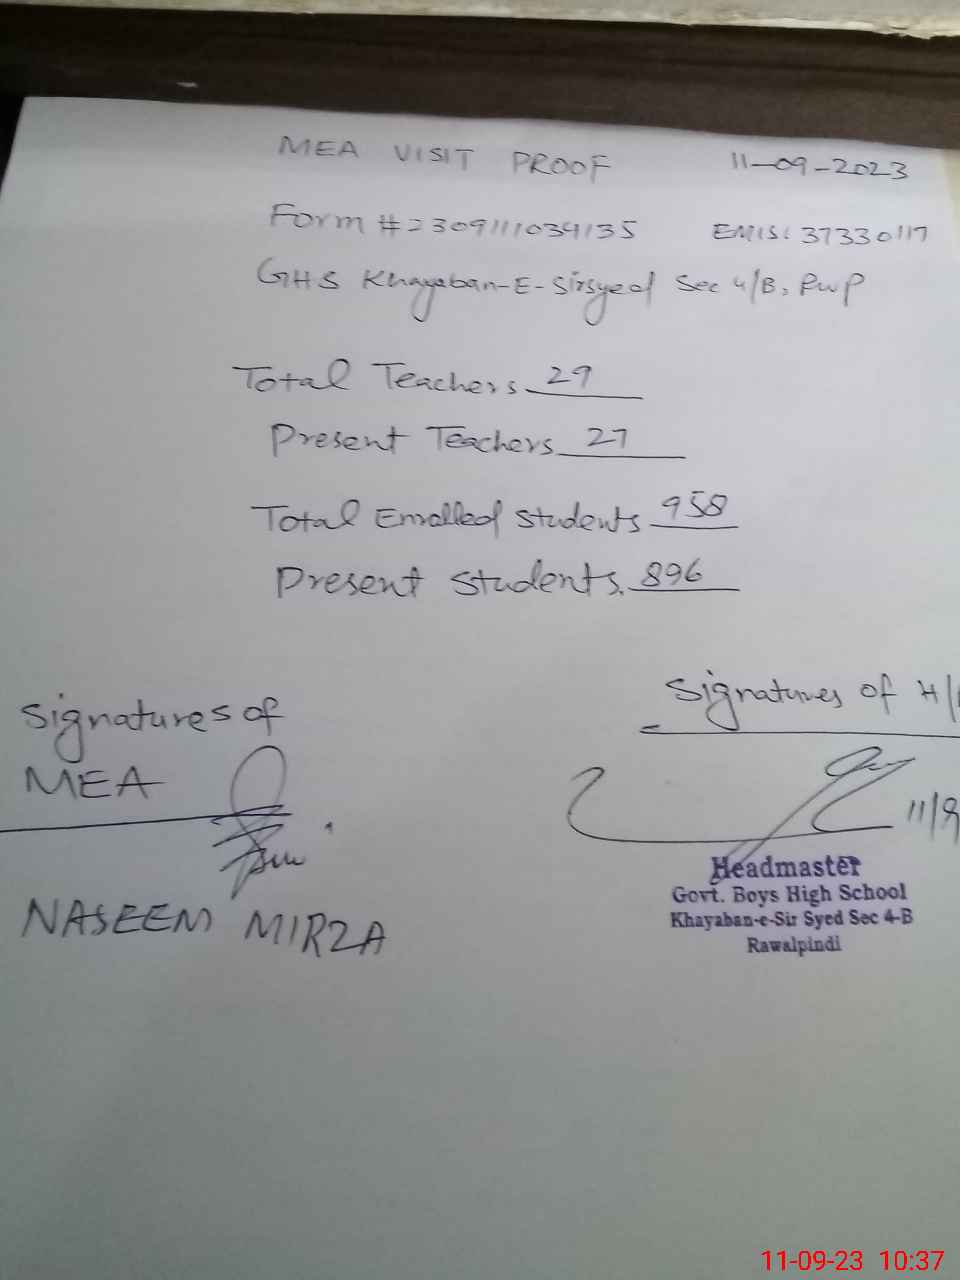 MEA VISIT PROOF 11-09-2023
Form # 2309111034135 EMIS: 37330117
GHS Khayaban-E-Sirsyed Sec 4/B, RwP
Total Teachers 29
Present Teachers 27
Total Enrolled Students 958
Present Students. 896
Signatures of H/
Signatures of
MEA
11/9
NASEEM MIRZA
Headmaster
Govt. Boys High School
Khayaban-e-Sir Syed Sec 4-B
Rawalpindi
11-09-23 10:37